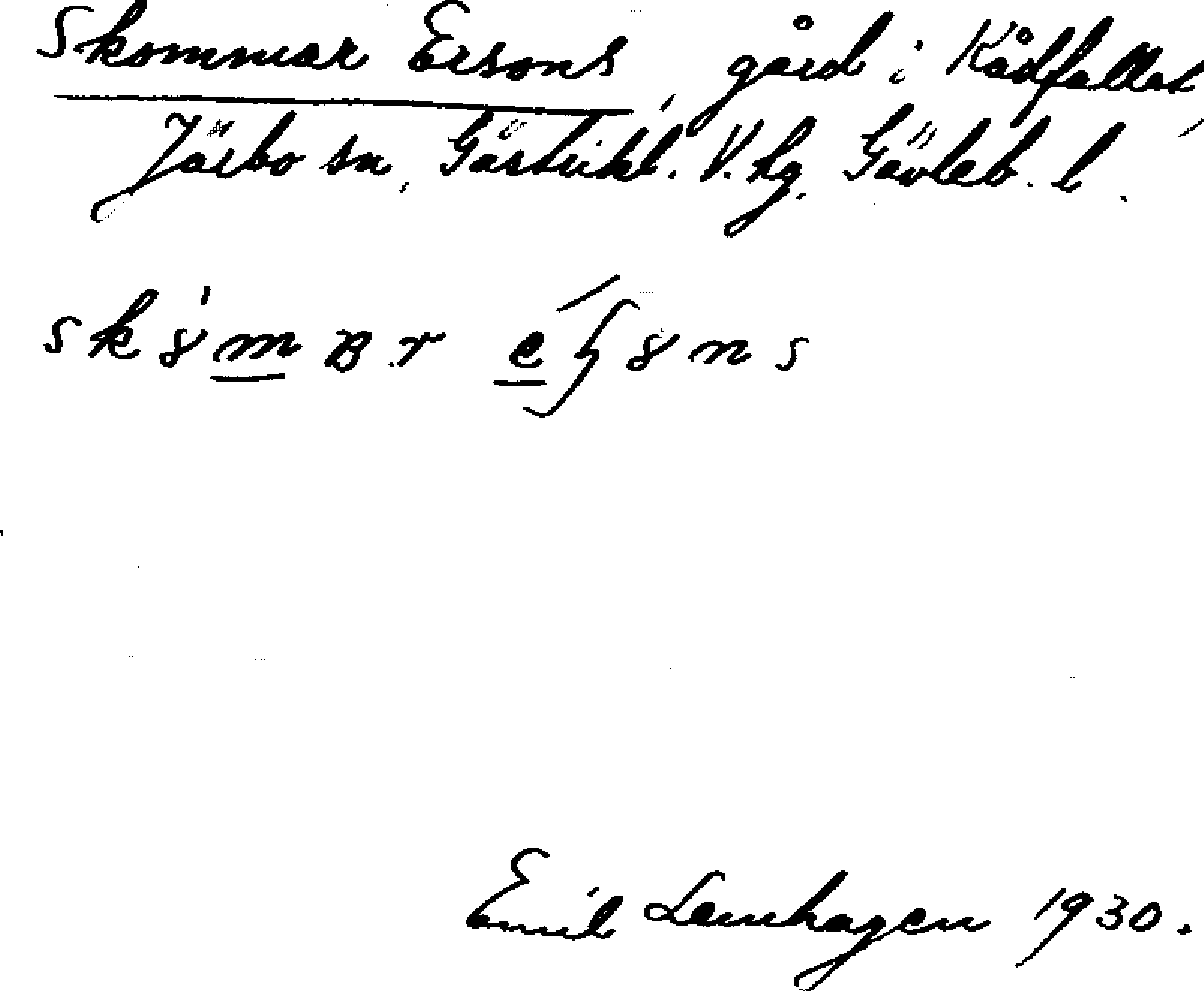 Skommar Ersons, gård i Kådfallet,
Järbo sn, Gästrikl. V. hg. Gävleb. l.
Emil Lemhagen 1930.